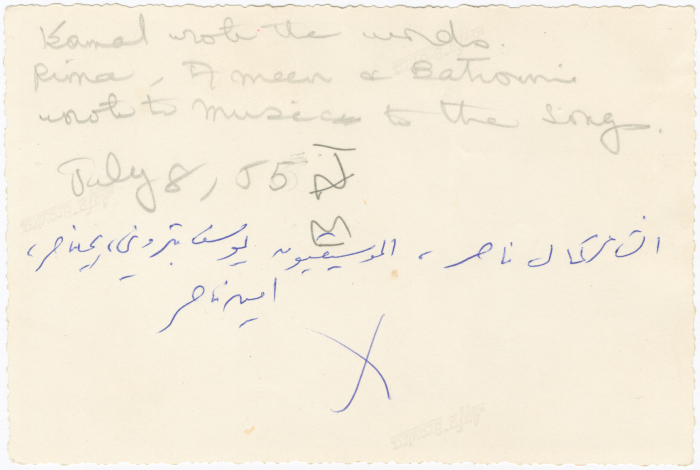 Kamal wrote the words.
Rima, Ameen & Bathouni
wrote to music to the song.
July 8, 55
الشاعر كمال ناصر ، الموسيقيون يوسف بتروني، ريما ناصر،
امين ناصر